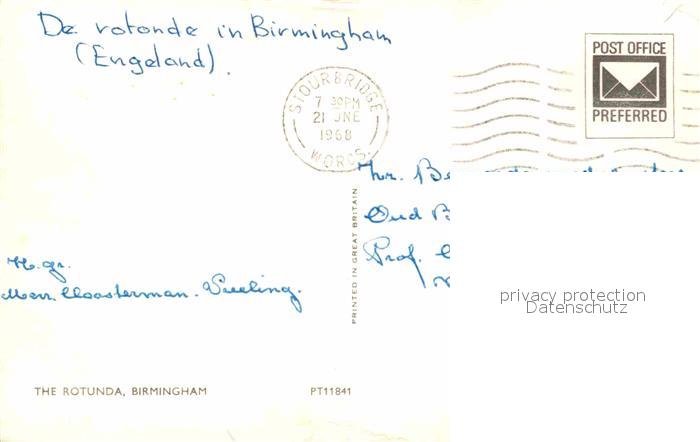 De rotonde in Birmingham
(Engeland).
STOURBRIDGE
7 30PM
21 JNE
1968
WORCS.
POST OFFICE
PREFERRED
Oud
Prof.
H. gr.
PRINTED IN GREAT BRITAIN
privacy protection
Datenschutz
THE ROTUNDA, BIRMINGHAM
PT11841